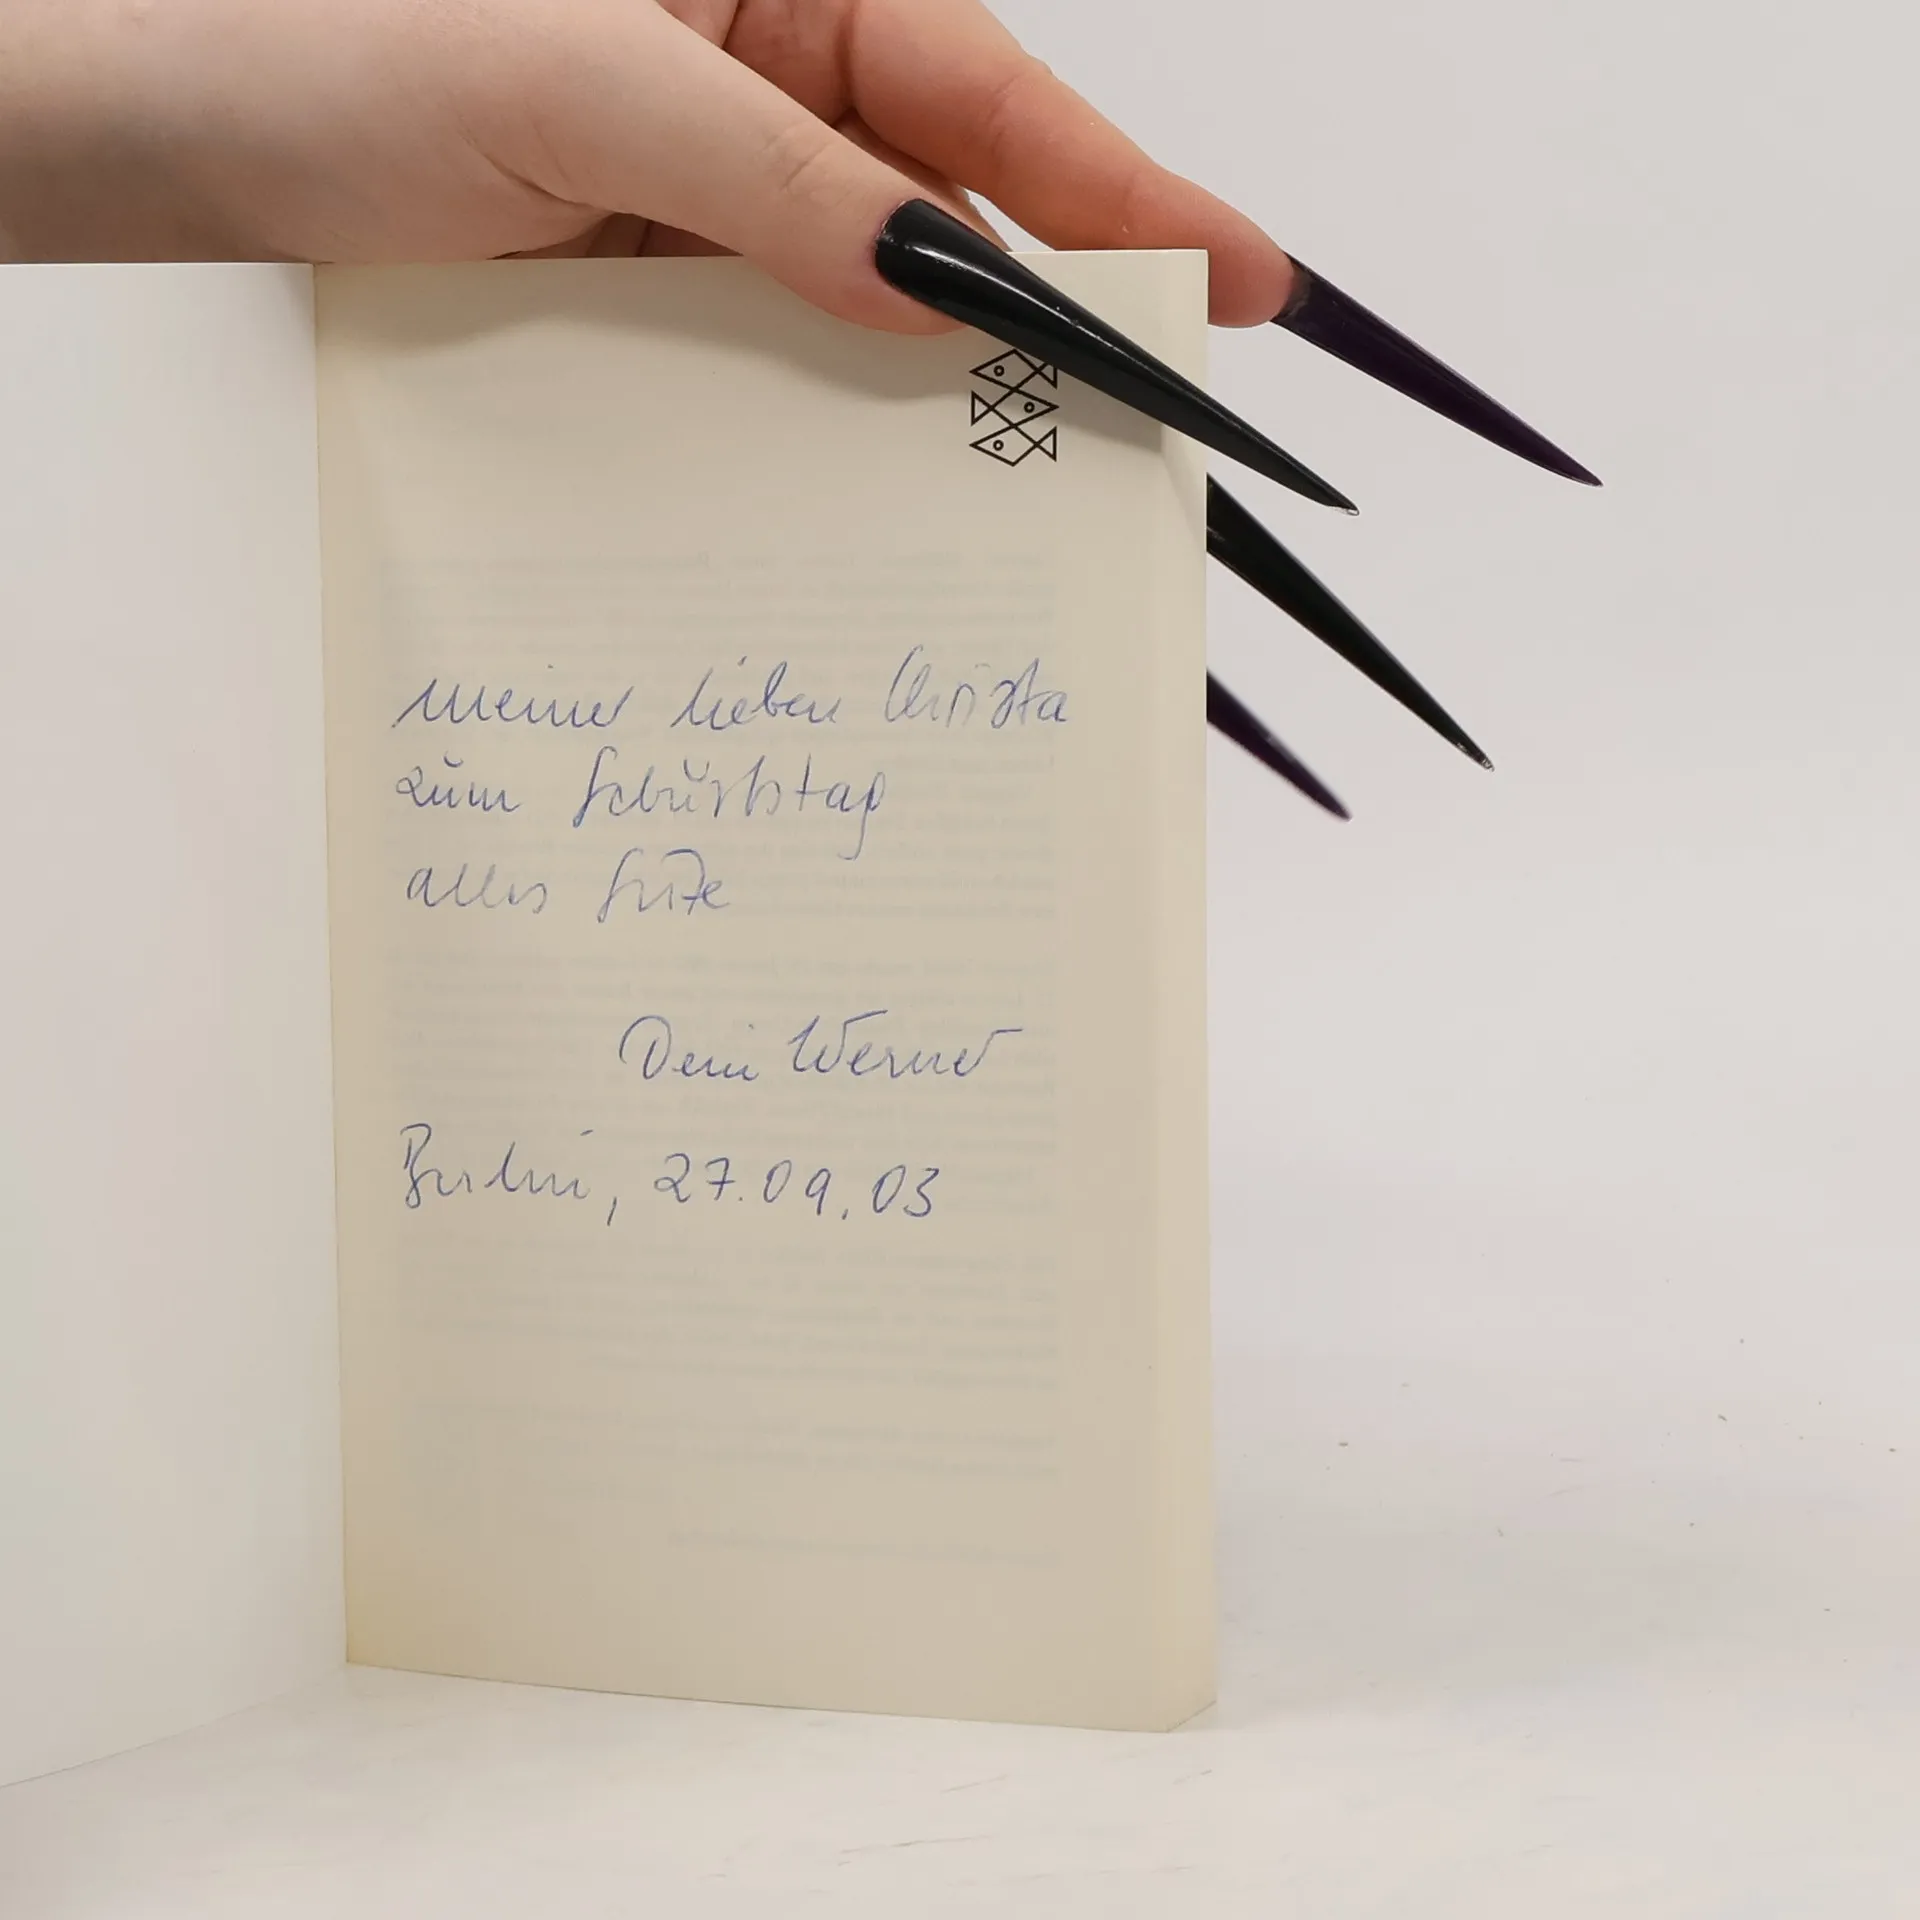 meiner lieben Christa
zum Geburtstag
alles Gute
Dein Werner
Berlin, 27.09.03